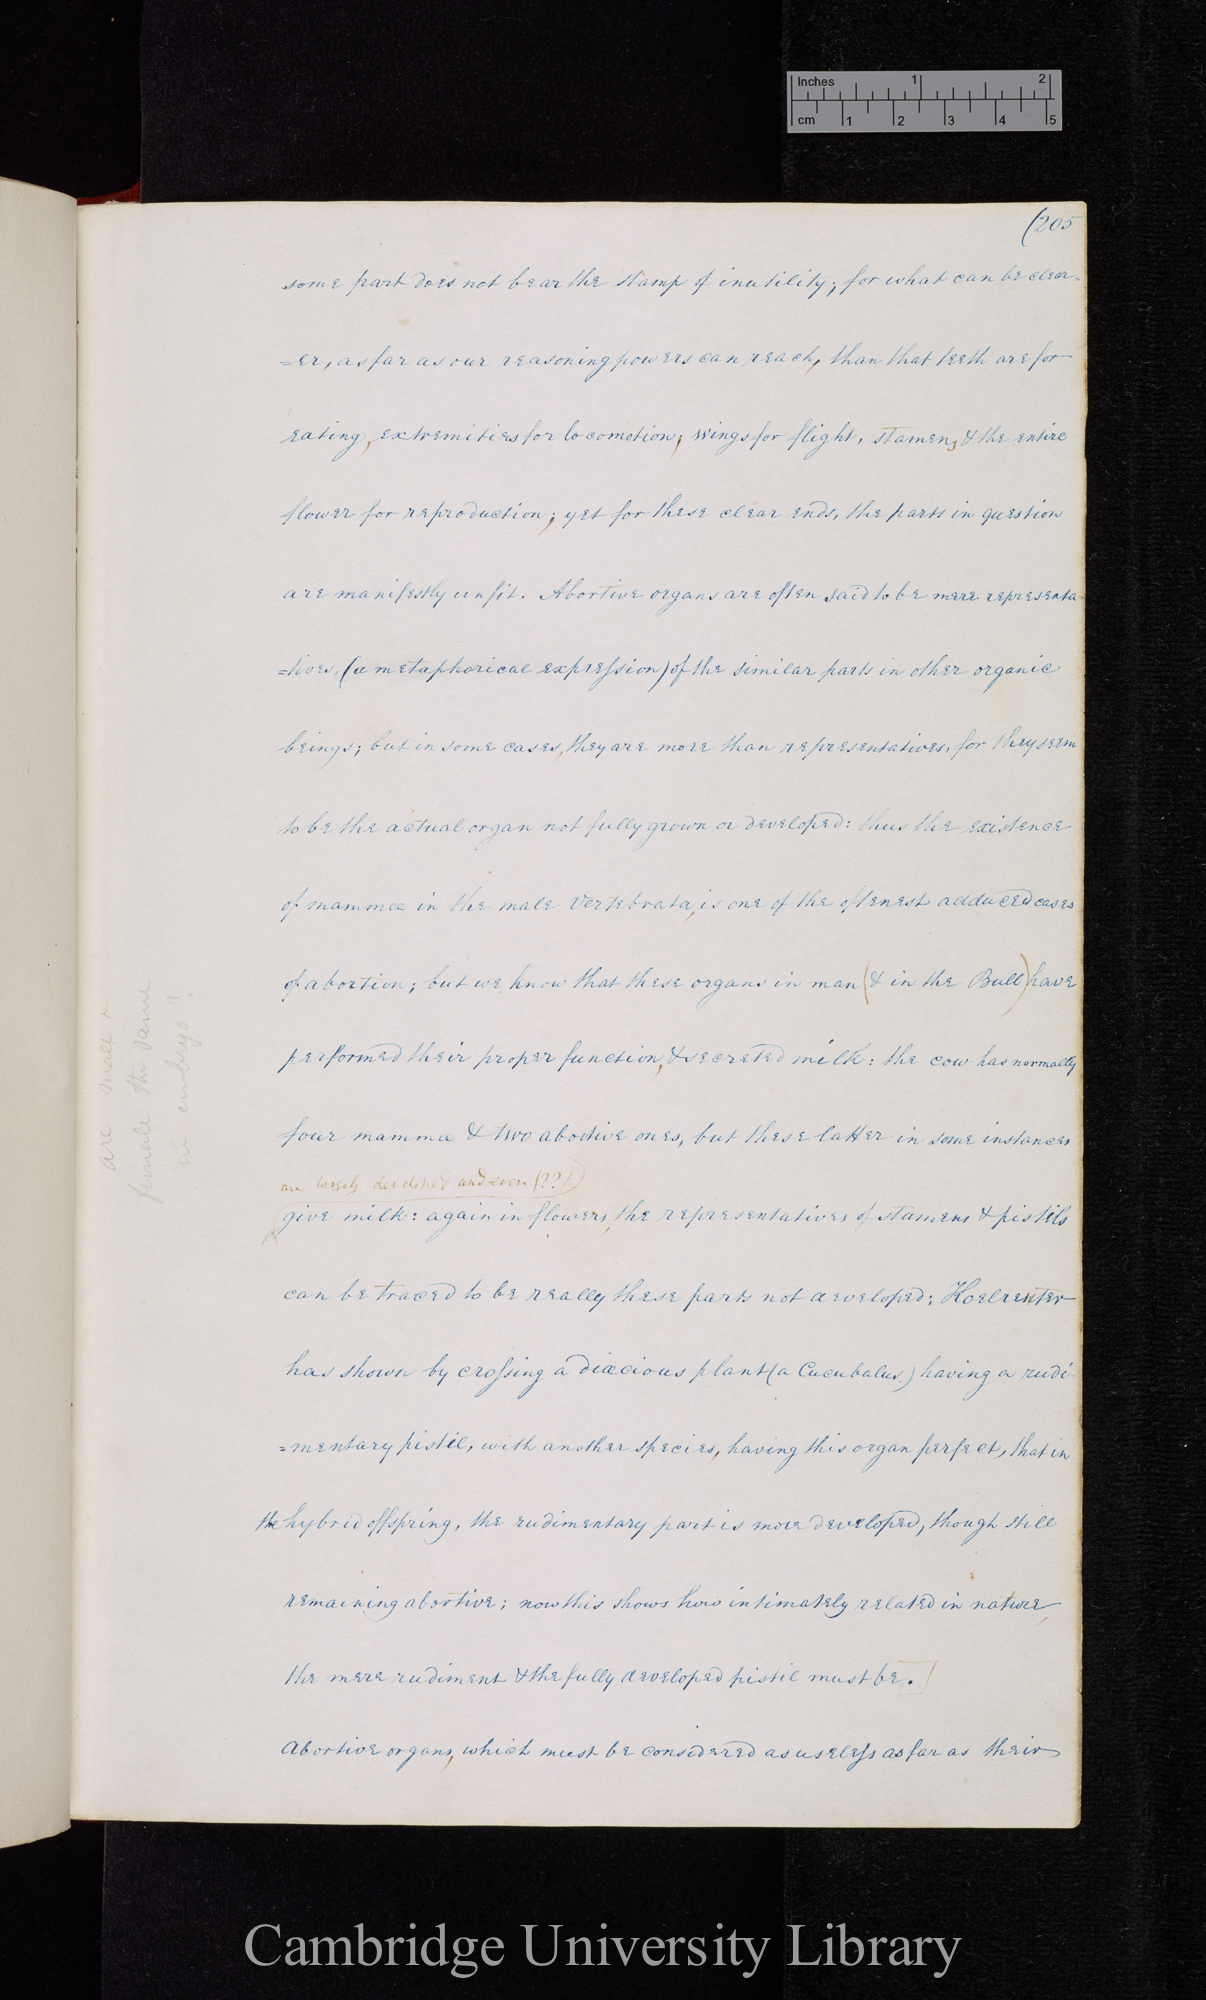 Inches 1 2
cm 1 2 3 4 5
(205
some part does not bear the stamp of inutility; for what can be clear-
=er, as far as our reasoning powers can reach, than that teeth are for
eating, extremities for locomotion, wings for flight, stamens, & the entire
flower for reproduction; yet for these clear ends, the parts in question
are manifestly unfit. Abortive organs are often said to be mere representa-
=tives, (a metaphorical expression) of the similar parts in other organic
beings; but in some cases, they are more than representatives, for they seem
to be the actual organ not fully grown or developed: thus the existence
of mammæ in the male Vertebrata, is one of the oftenest adduced cases
of abortion; but we know that these organs in man (& in the Bull) have
performed their proper function, & secreted milk: the cow has normally
four mammæ & two abortive ones, but these latter in some instances
are largely developed and even (??)
give milk: again in flowers, the representatives of stamens & pistils
can be traced to be really these parts not developed; Koelreuter
has shown by crossing a diæcious plant (a Cucubalus) having a rudi-
=mentary pistil, with another species, having this organ perfect, that in
the hybrid offspring, the rudimentary part is more developed, though still
remaining abortive; now this shows how intimately related in nature,
the mere rudiment & the fully developed pistil must be.]
Abortive organs, which must be considered as useless as far as their
are male &
female the same
in embryo?
Cambridge University Library